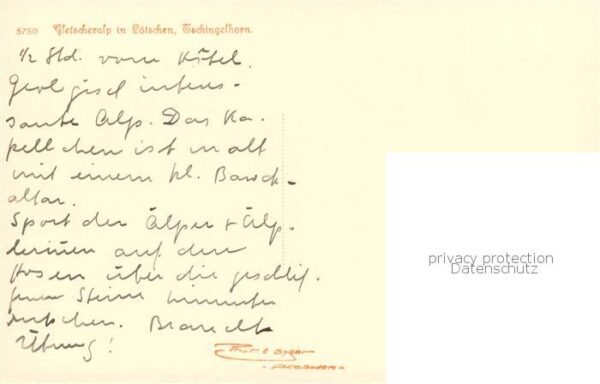 5750 Gletscheralp in Lötschen, Tschingelhorn.
1/2 Std. vom Hôtel.
Geologisch interes-
sante Alp. Das Ka-
pellchen ist uralt
mit einem kl. Barock-
altar.
Sport der Älper + Älp-
lerinnen auf den
Hosen über die geschlif-
fenen Steine hinunter
rutschen. Braucht
Übung!
privacy protection
Datenschutz